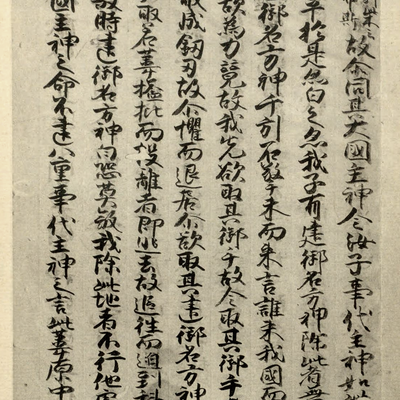 故尓問其大國主神今汝子事代主神如此
乎於是亦白之亦我子有建御名方神除此者無
御名方神千引石擎手末而来言誰来我國而
欲為力競故我先欲取其御手故令取其御手
取成釼刃故尓懼而退居尓欲取其建御名方神
取若葦搤批而投離者即逃去故追往而迫到科
殺時建御名方神白恐莫殺我除此地者不行他
國主神之命不違八重事代主神之言此葦原中